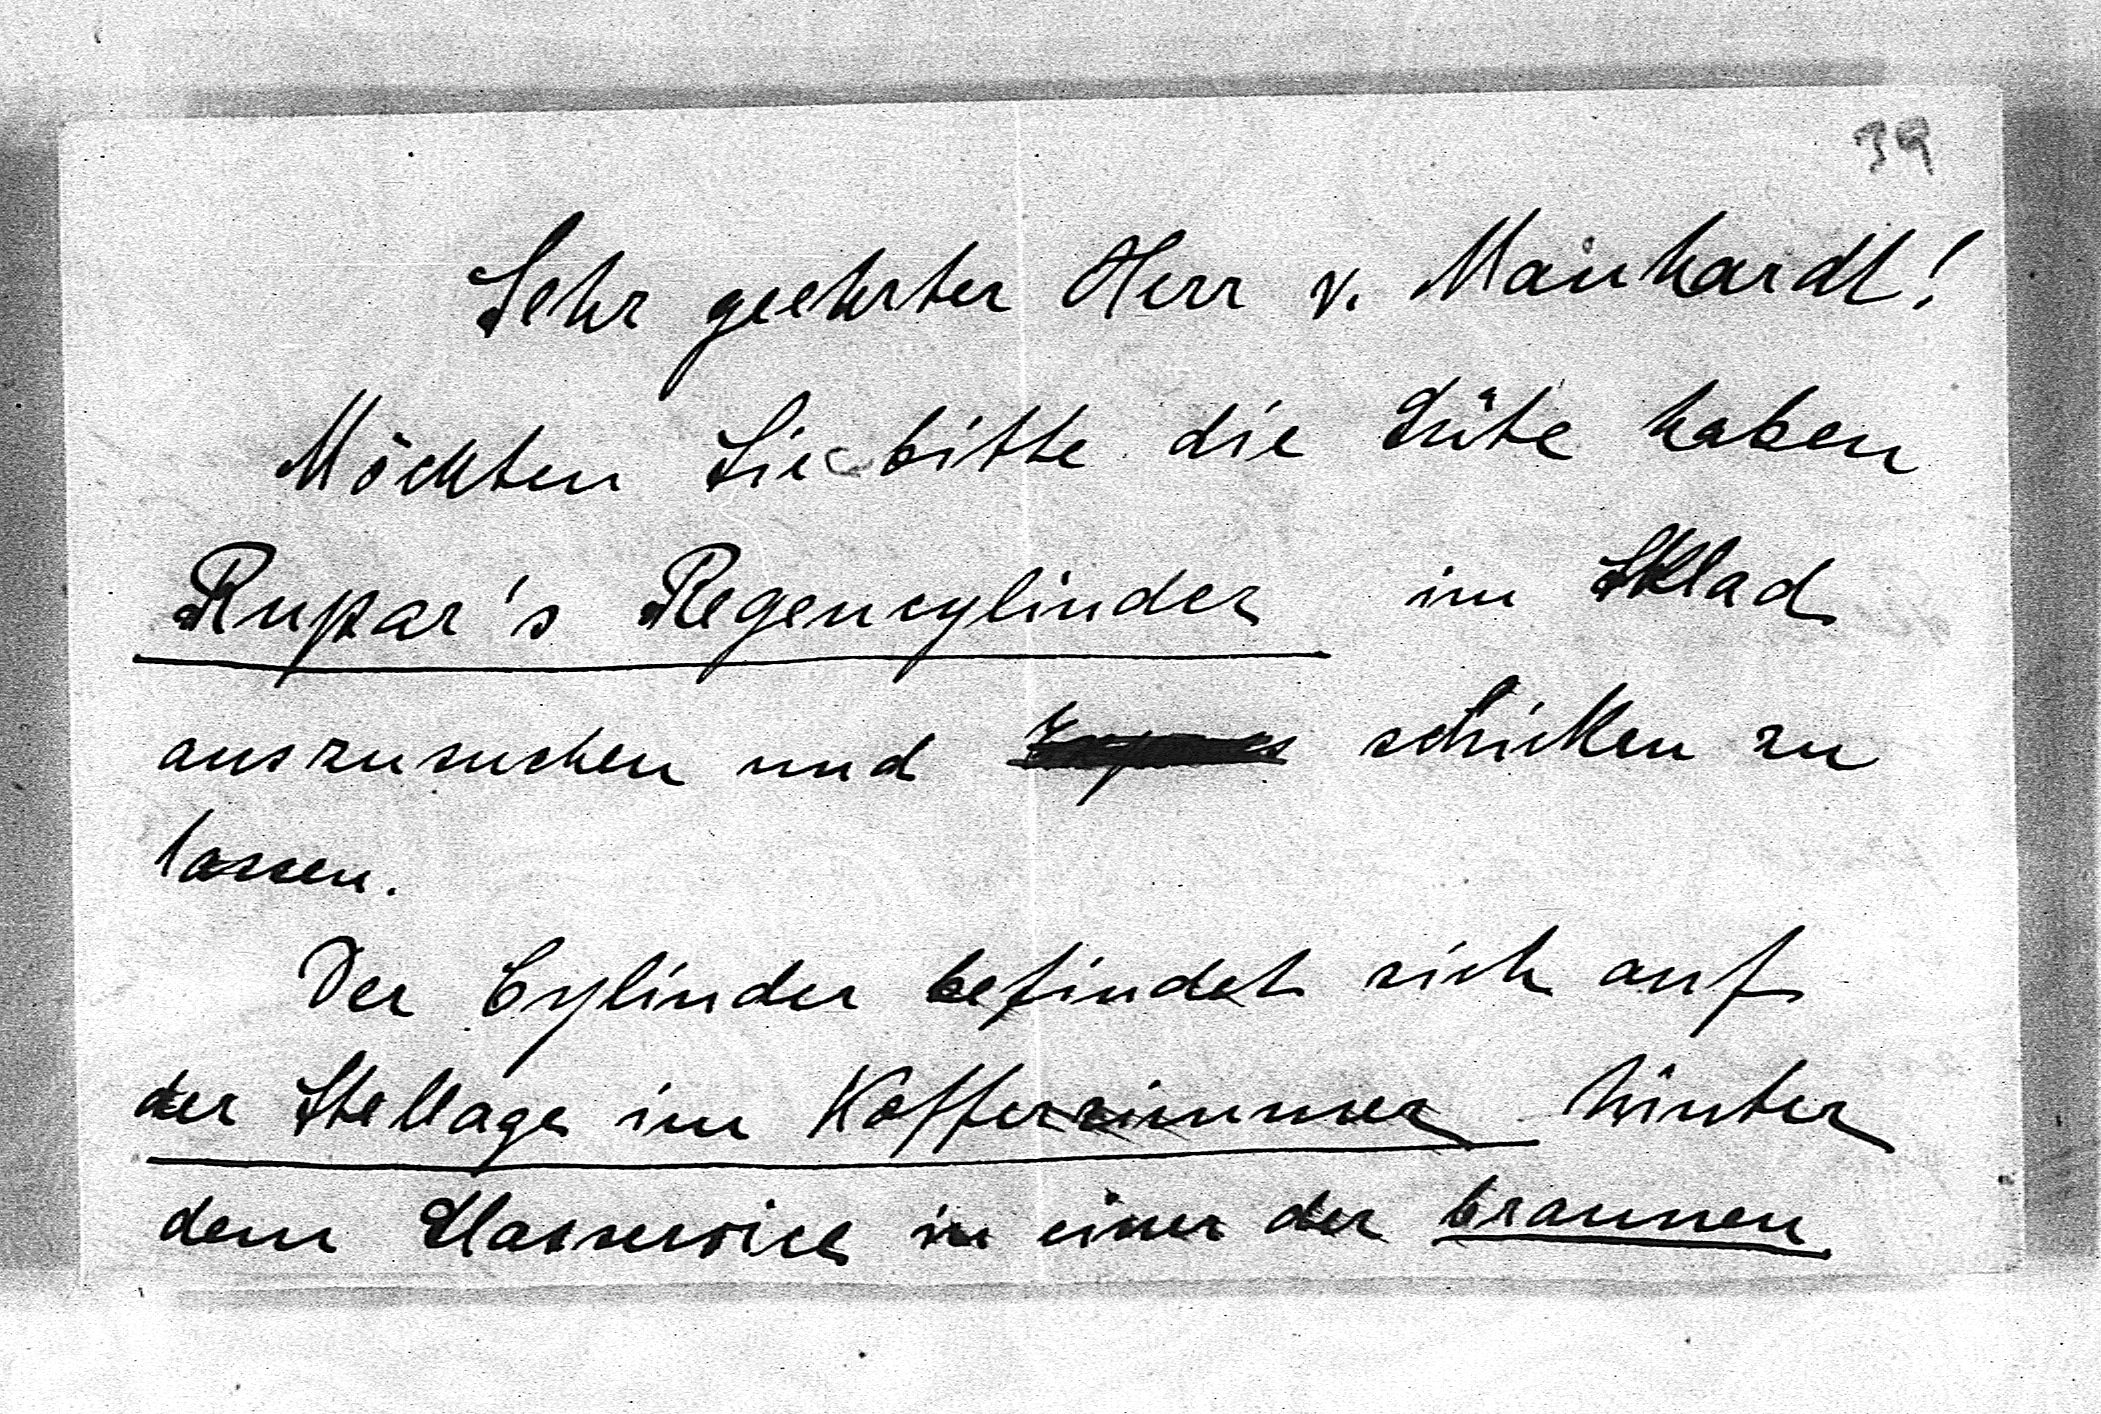 39
Sehr geehrter Herr v. Mainhardt!
Möchten Sie bitte die Güte haben
Rupar's Regencylinder im Sklad
auszusuchen und schicken zu
lassen.
Der Cylinder befindet sich auf
der Stellage im Kofferzimmer hinter
dem Glasservice in einer der braunen